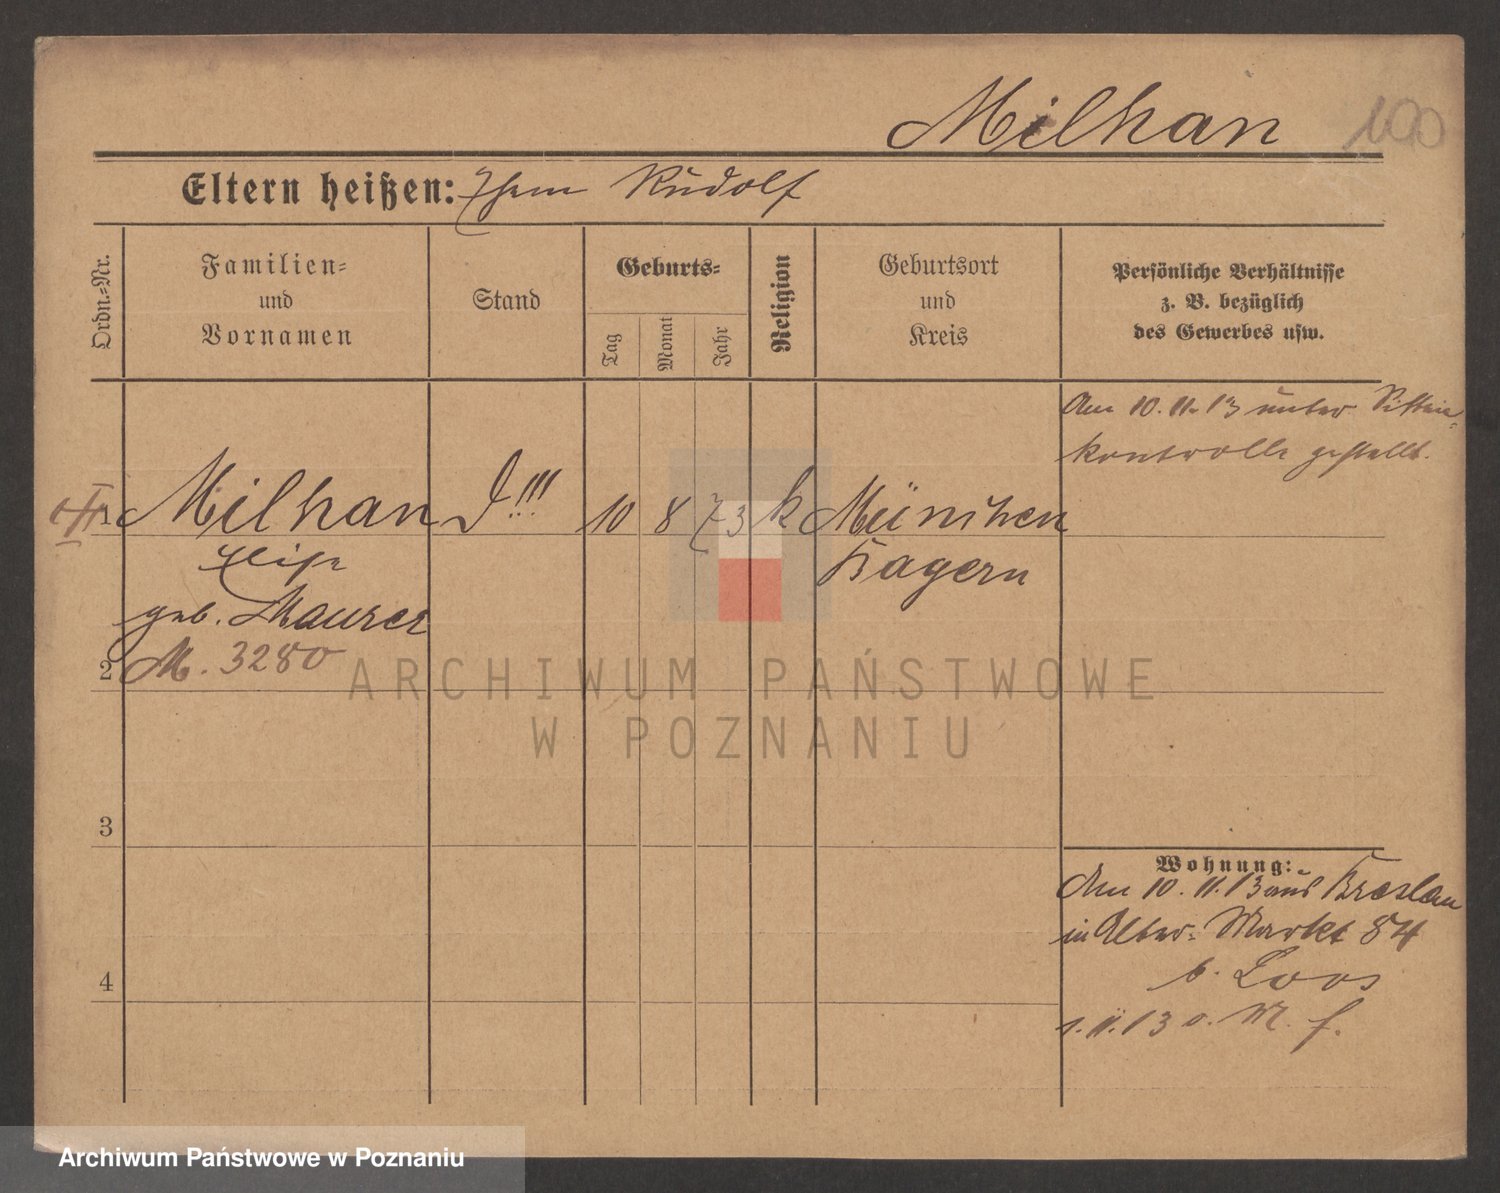 Milhan 100
Eltern heißen: Ehem Rudolf
Ordn.-Nr.
Familien-
und
Vornamen
Stand
Geburts-
Tag
Monat
Jahr
Religion
Geburtsort
und
Kreis
Persönliche Verhältnisse
z. B. bezüglich
des Gewerbes usw.
Am 10.11.13 unter Sitten-
kontrolle gestellt.
1 Milhan D!!! 10 8 73 k München
Elise Bayern
geb. Maurer
2 M. 3280
3
4
Wohnung:
Am 10.11.13 aus Breslau
in Alter-Markt 84
b. Loos
ARCHIWUM PAŃSTWOWE
W POZNANIU
Archiwum Państwowe w Poznaniu